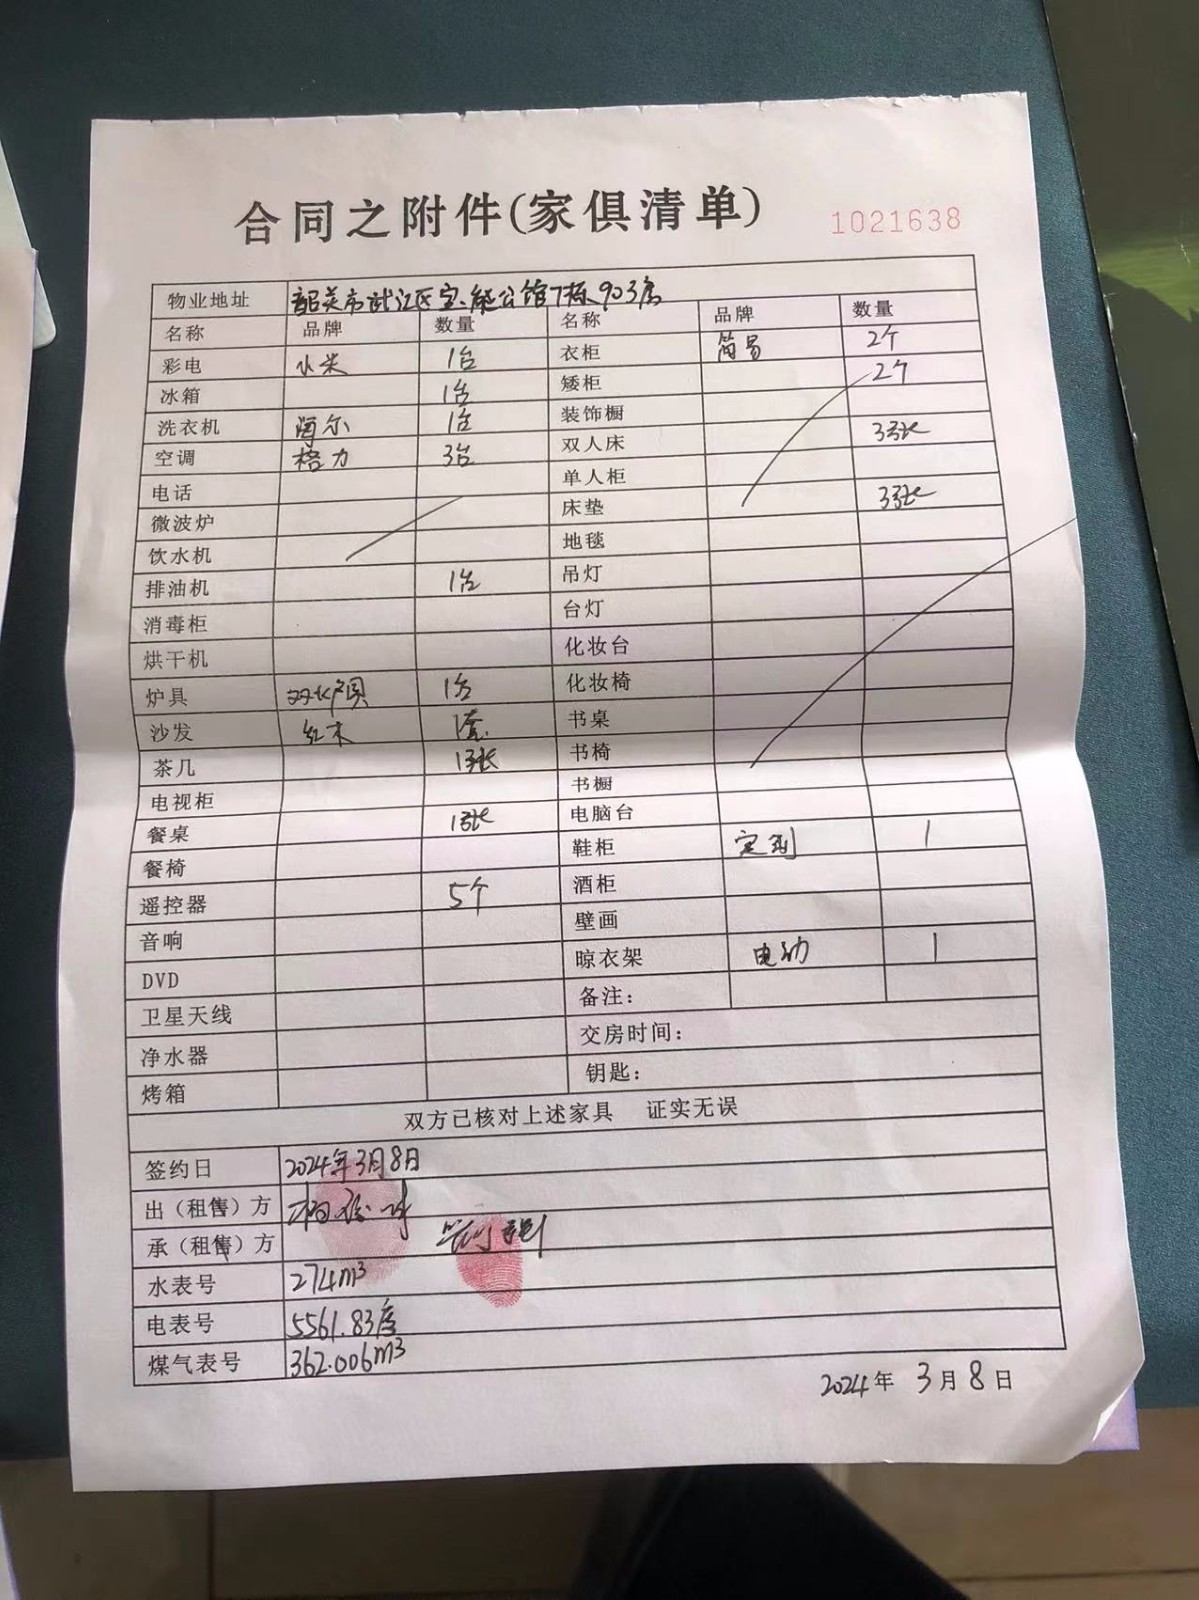 合同之附件(家俱清单)
1021638
物业地址 韶关市武江区宝能公馆7栋903房
名称 品牌 数量 名称 品牌 数量
彩电 小米 1台 衣柜 简易 2个
冰箱 1台 矮柜 2个
洗衣机 海尔 1台 装饰橱
空调 格力 3台 双人床 3张
电话 单人柜
微波炉 床垫 3张
饮水机 地毯
排油机 1台 吊灯
消毒柜 台灯
烘干机 化妆台
炉具 1台 化妆椅
沙发 红木 1套 书桌
茶几 1张 书椅
电视柜 书橱
餐桌 1张 电脑台
餐椅 鞋柜 定制 1
遥控器 5个 酒柜
音响 壁画
DVD 晾衣架 电动 1
卫星天线 备注：
净水器 交房时间：
烤箱 钥匙：
双方已核对上述家具 证实无误
签约日 2024年3月8日
出（租售）方
承（租售）方
水表号 274m³
电表号 5561.83度
煤气表号 362.006m³
2024年 3月8日